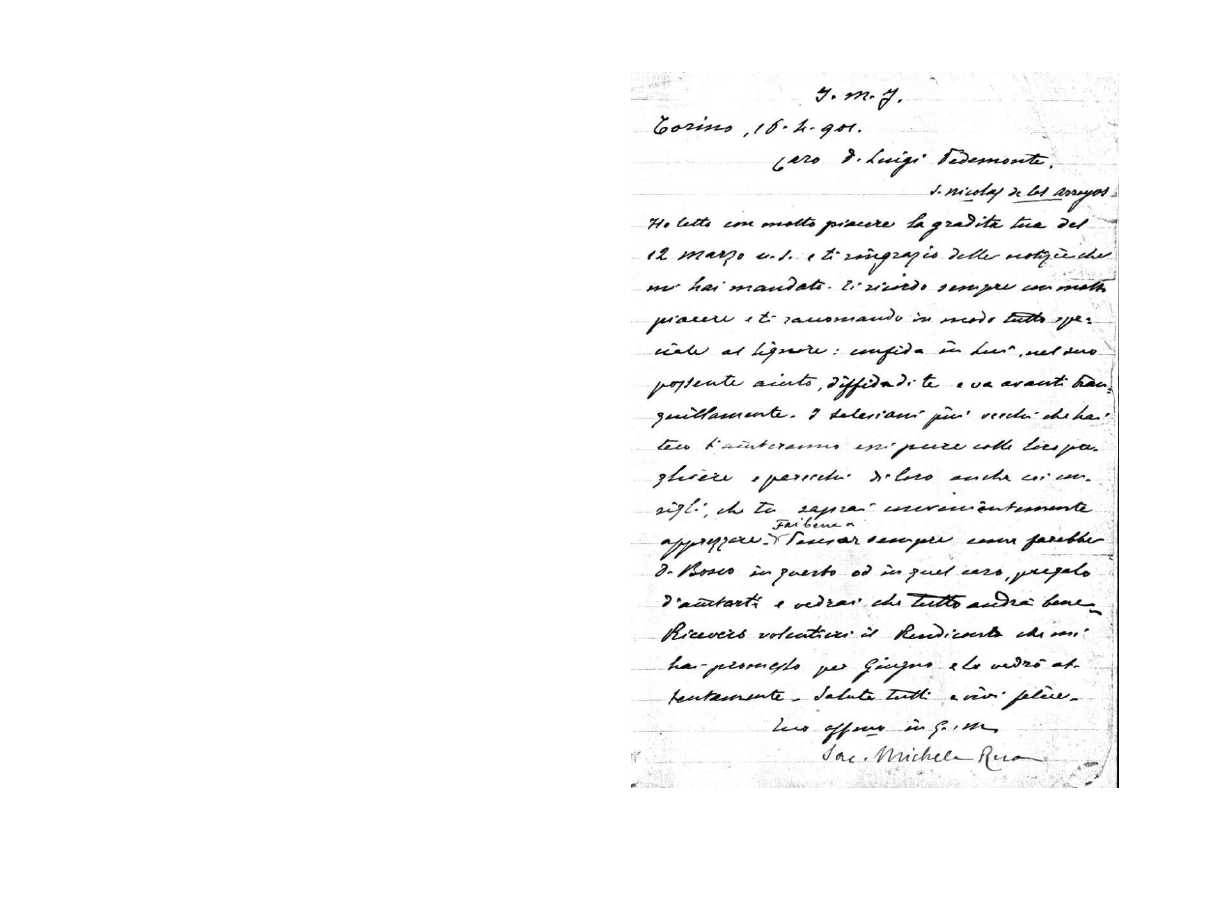 J. M. J.
Torino, 16-4-901.
Caro D. Luigi Pedemonte,
S. Nicolas de los arroyos
Ho letto con molto piacere la gradita tua del
12 marzo u.s. e ti ringrazio delle notizie che
mi hai mandate. Ti ricordo sempre con molto
piacere e ti raccomando in modo tutto spe-
ciale al Signore: confida in Lui, nel suo
possente aiuto, diffida di te e va avanti tran-
quillamente. I salesiani più vecchi che hai
teco t'aiuteranno essi pure colle loro pre-
ghiere e parecchi di loro anche coi con-
sigli, che tu saprai convenientemente
Fai bene a
apprezzare. Pensar sempre come farebbe
D. Bosco in questo od in quel caso, pregalo
d'aiutarti e vedrai che tutto andrà bene.
Riceverò volentieri il Rendiconto che mi
hai promesso per Giugno e lo vedrò at-
tentamente. Saluta tutti e vivi felice.
Tuo affmo in G. e M.
Sac. Michele Rua